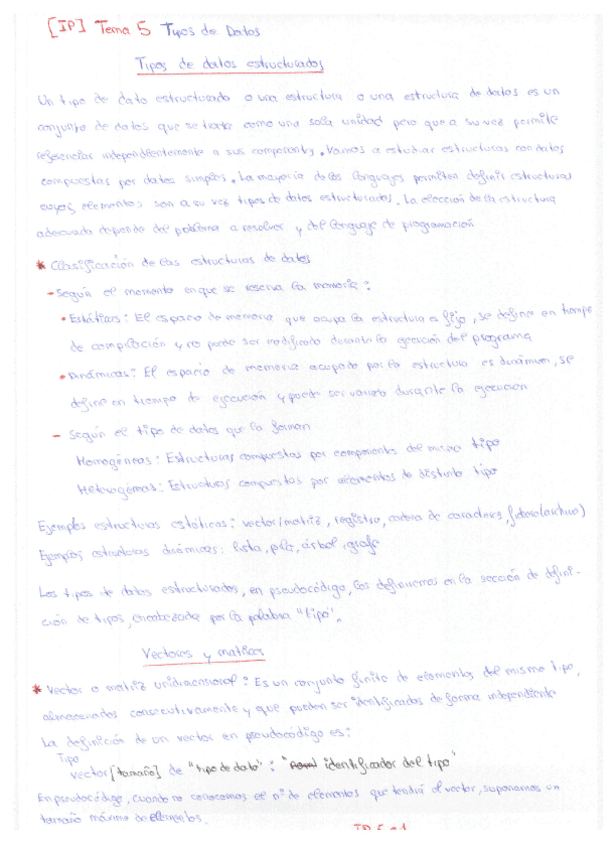 [IP] Tema 5 Tipos de Datos
Tipos de datos estructurados
Un tipo de dato estructurado o una estructura o una estructura de datos es un
conjunto de datos que se trata como una sola unidad pero que a su vez permite
referenciar independientemente a sus componentes. Vamos a estudiar estructuras con datos
compuestas por datos simples. La mayoría de los lenguajes permiten definir estructuras
cuyos elementos son a su vez tipos de datos estructurados. La elección de la estructura
adecuada depende del problema a resolver y del lenguaje de programación
* Clasificación de las estructuras de datos
- Según el momento en que se reserva la memoria:
• Estáticas: El espacio de memoria que ocupa la estructura es fijo, se define en tiempo
de compilación y no puede ser modificado durante la ejecución del programa
• Dinámicas: El espacio de memoria ocupado por la estructura es dinámico, se
define en tiempo de ejecución y puede ser variado durante la ejecución
- Según el tipo de datos que la forman
Homogéneas: Estructuras compuestas por componentes del mismo tipo
Heterogéneas: Estructuras compuestas por elementos de distinto tipo
Ejemplos estructuras estáticas: vector/matriz, registro, cadena de caracteres, fichero(archivo)
Ejemplos estructuras dinámicas: lista, pila, árbol, grafo
Los tipos de datos estructurados, en pseudocódigo, los definiremos en la sección de defini-
ción de tipos, encabezada por la palabra "tipo".
Vectores y matrices
* Vector o matriz unidimensional: Es un conjunto finito de elementos del mismo tipo,
almacenados consecutivamente y que pueden ser identificados de forma independiente
La definición de un vector en pseudocódigo es:
Tipo
vector [tamaño] de "tipo de dato": "identificador del tipo"
En pseudocódigo, cuando no conocemos el nº de elementos que tendrá el vector, suponemos un
tamaño máximo de elementos.